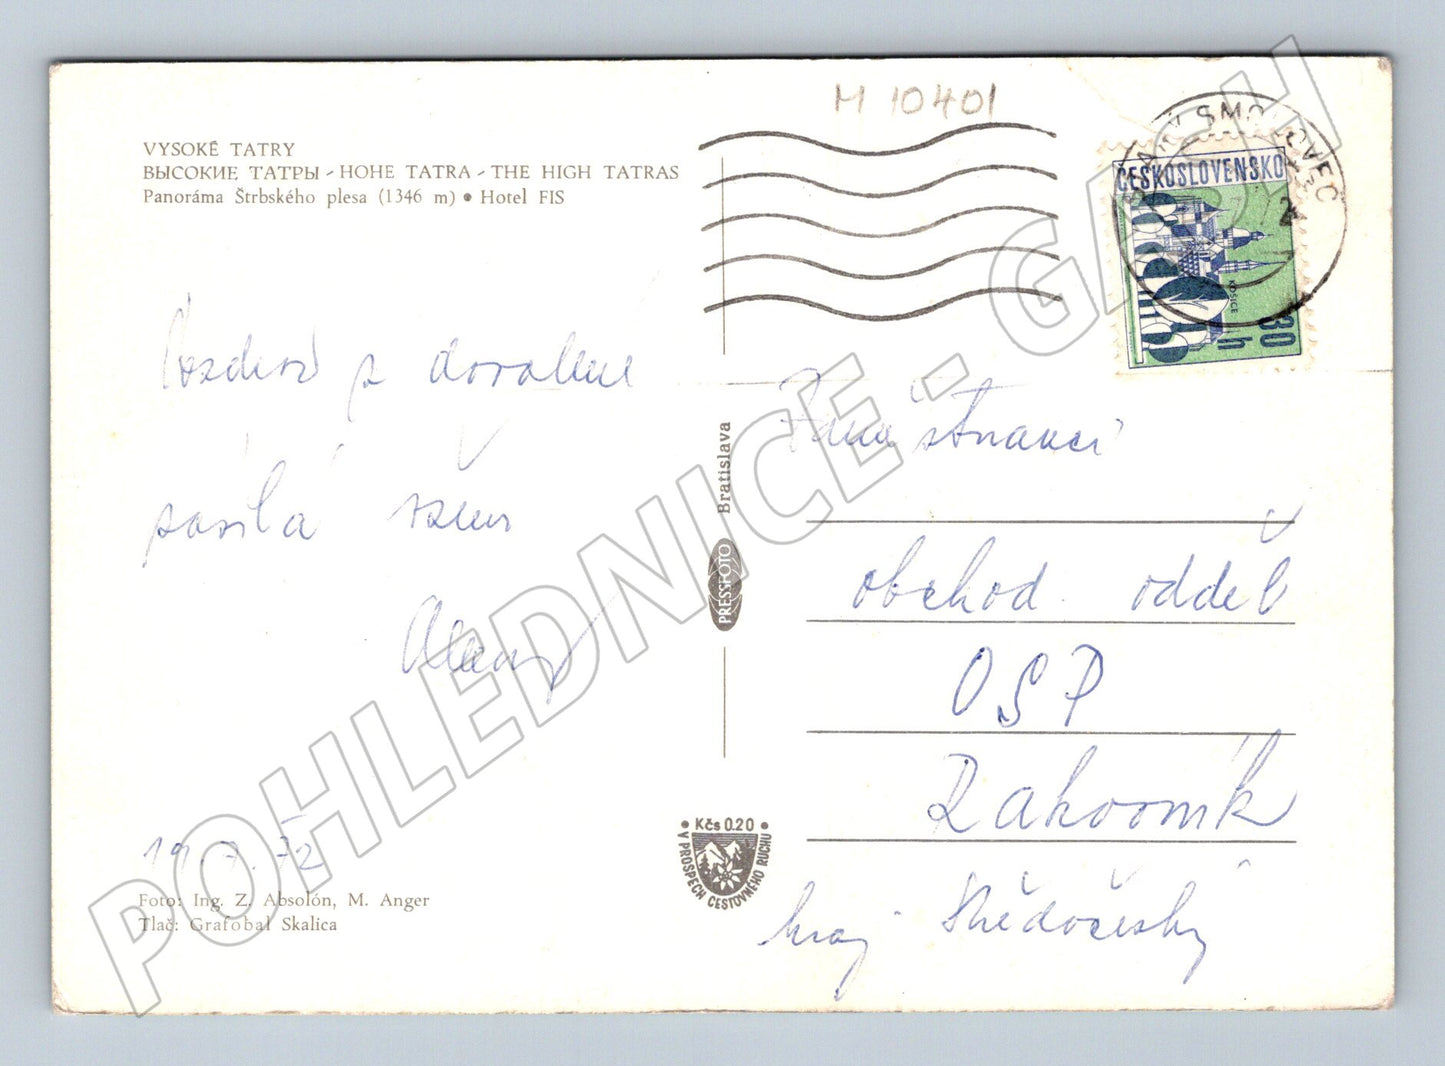 M 10401
VYSOKÉ TATRY
ВЫСОКИЕ ТАТРЫ - HOHE TATRA - THE HIGH TATRAS
Panoráma Štrbského plesa (1346 m) • Hotel FIS
STARÝ SMOKOVEC
ČESKOSLOVENSKO
KOŠICE
30 h
Pozdrav z dovolené
zasílá všem
19.7.72
Foto: Ing. Z. Absolón, M. Anger
Tlač: Grafobal Skalica
Bratislava
PRESSFOTO
• Kčs 0.20 •
V PROSPECH CESTOVNÉHO RUCHU
obchod. odděl
OSP
Rakovník
kraj Středočeský
POHLEDNICE - GACH